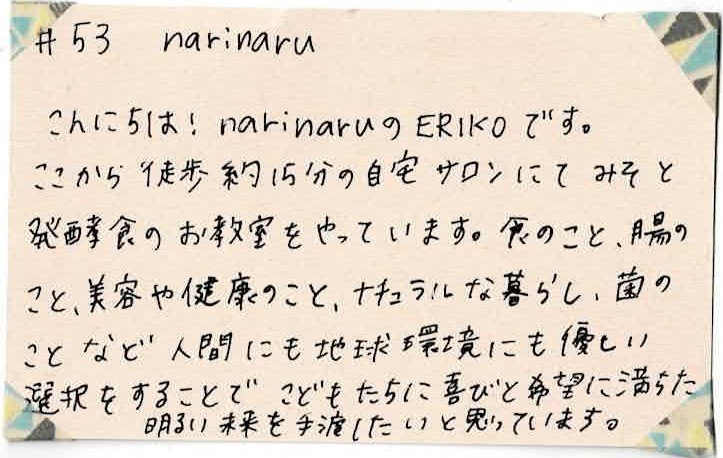 #53 narinaru
こんにちは! narinaruのERIKOです。
ここから徒歩約15分の自宅サロンにてみそと
発酵食のお教室をやっています。食のこと、腸の
こと、美容や健康のこと、ナチュラルな暮らし、菌の
ことなど人間にも地球環境にも優しい
選択をすることでこどもたちに喜びと希望に満ちた
明るい未来を手渡したいと思っています。